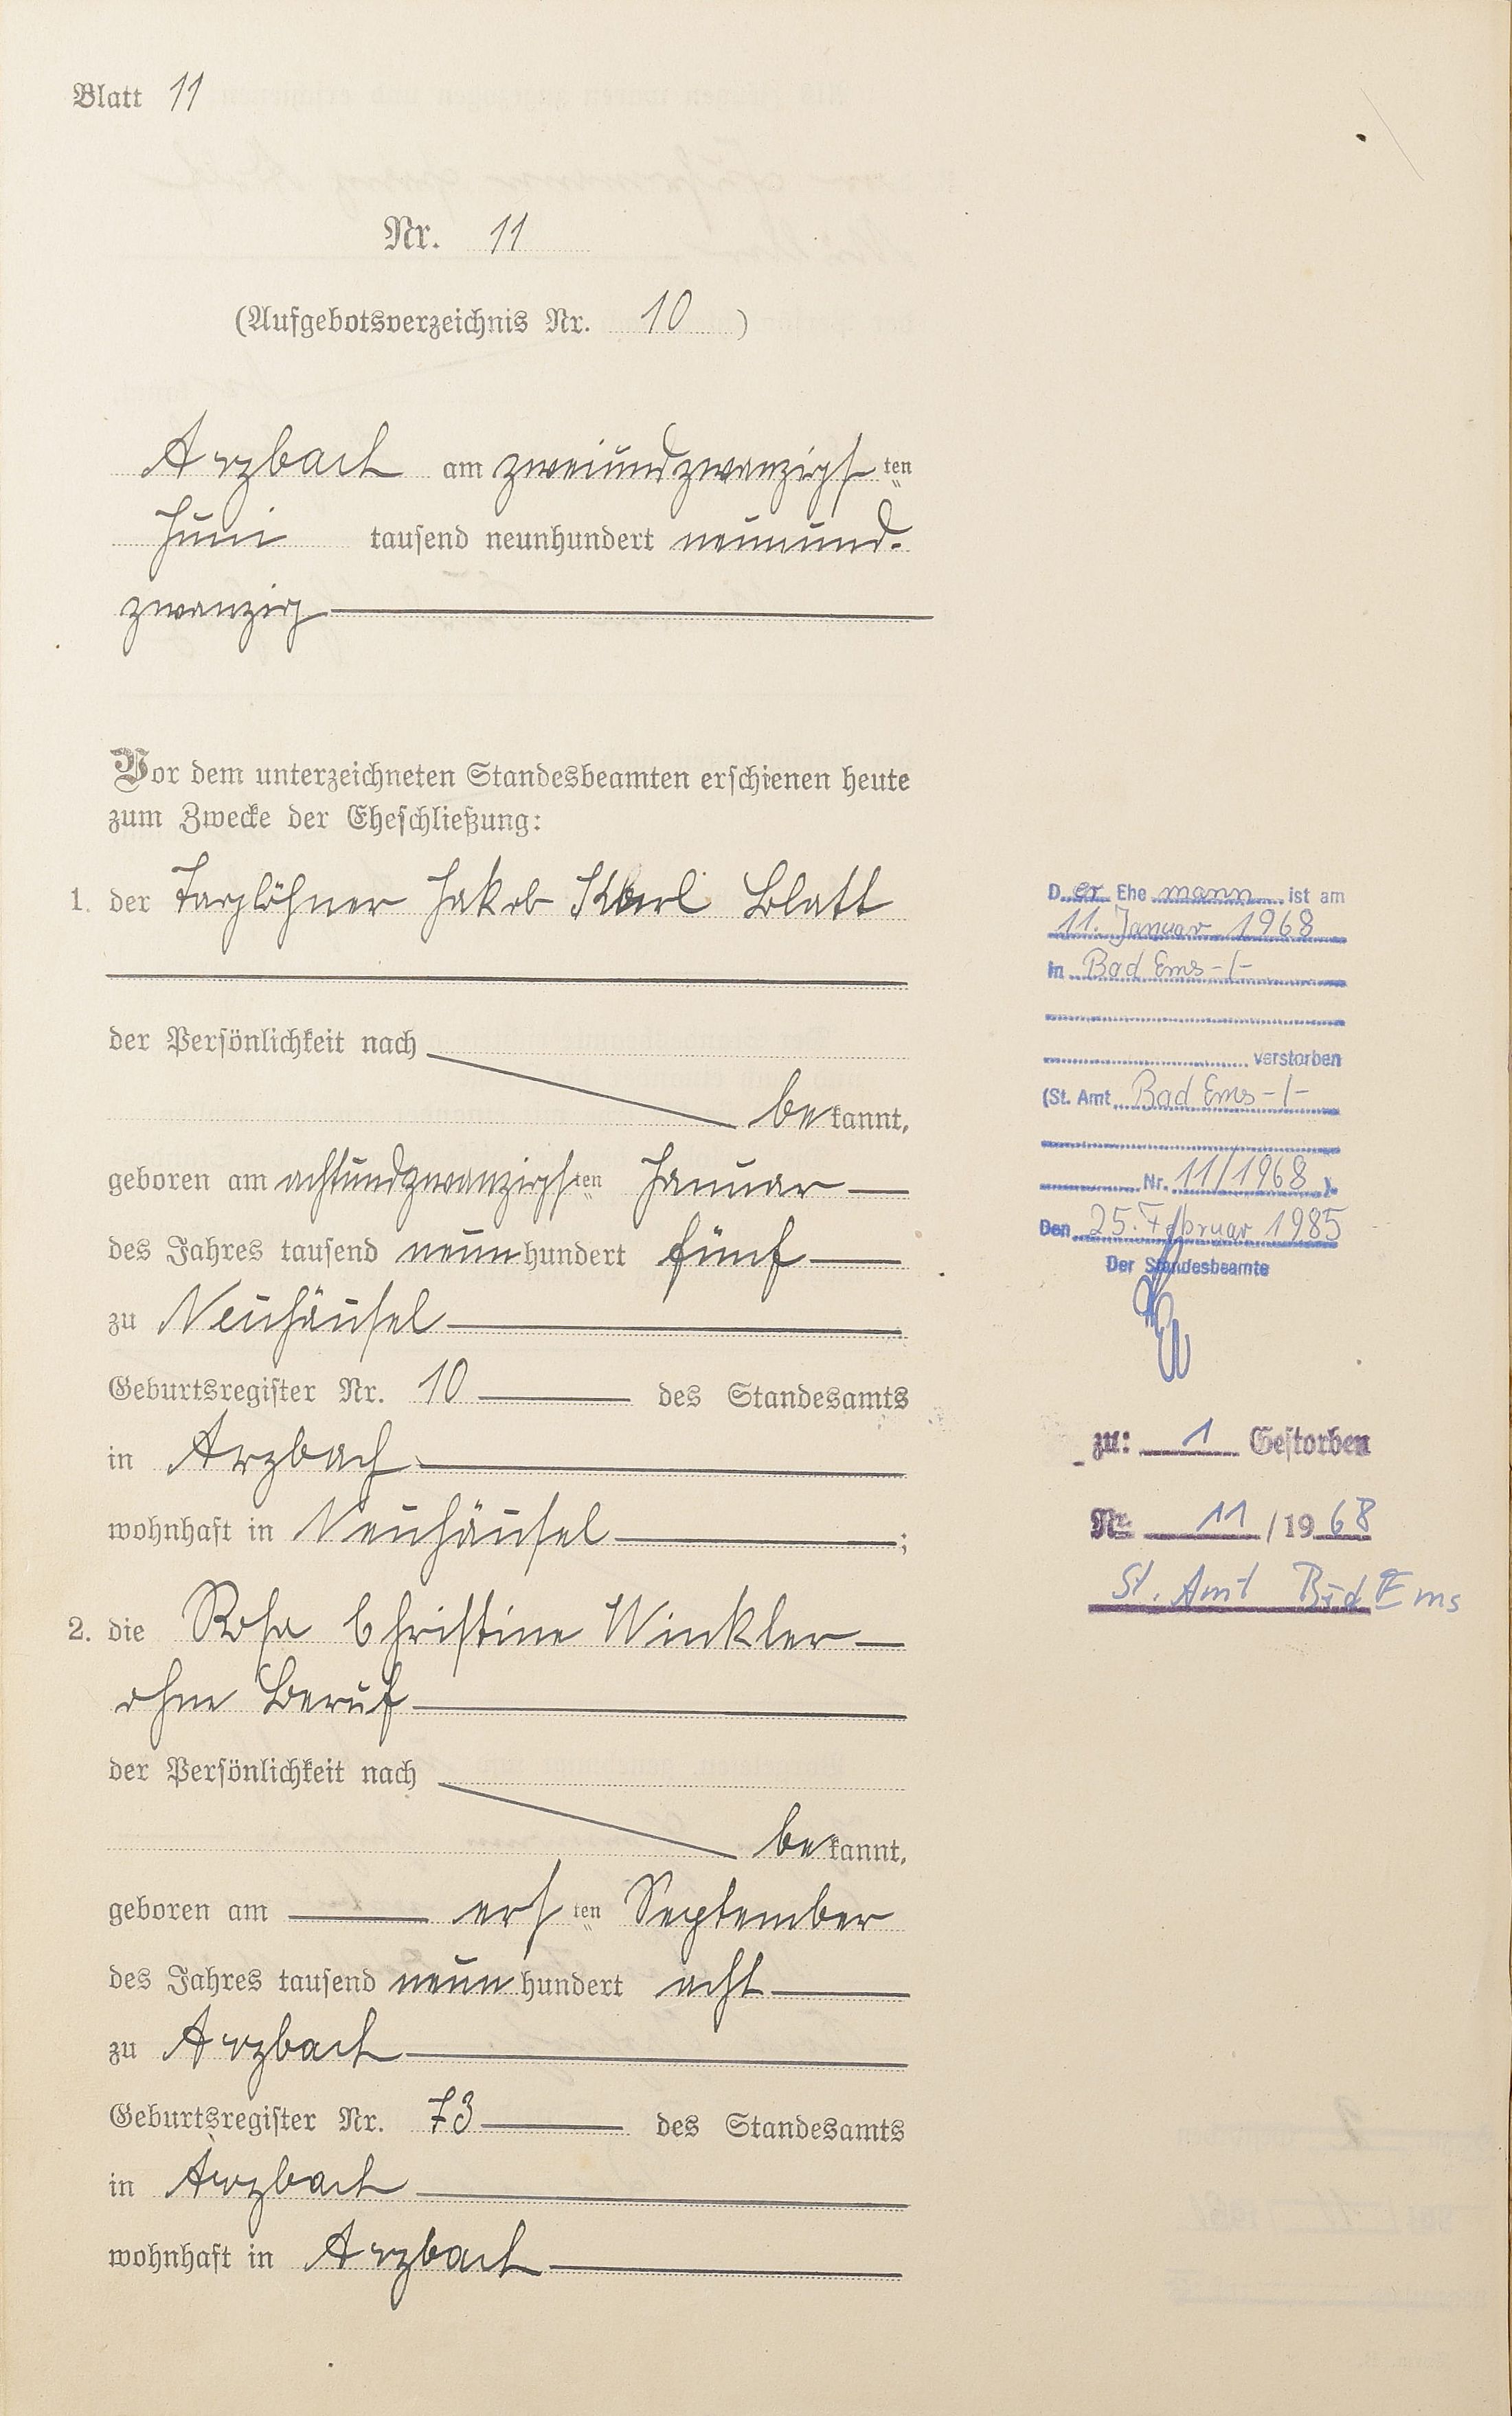 Blatt 11
Nr. 11
(Aufgebotsverzeichnis Nr. 10 )
Arzbach am zweiundzwanzigsten
Juni tausend neunhundert neunund-
zwanzig
Vor dem unterzeichneten Standesbeamten erschienen heute
zum Zwecke der Eheschließung:
1. der Taglöhner Jakob Karl Blatt
der Persönlichkeit nach
bekannt,
geboren am achtundzwanzigsten Januar
des Jahres tausend neunhundert fünf
zu Neuhäusel
Geburtsregister Nr. 10 des Standesamts
in Arzbach
wohnhaft in Neuhäusel ;
2. die Rosa Christine Winkler
ohne Beruf
der Persönlichkeit nach
bekannt,
geboren am ersten September
des Jahres tausend neunhundert acht
zu Arzbach
Geburtsregister Nr. 73 des Standesamts
in Arzbach
wohnhaft in Arzbach
Der Ehemann ist am
11. Januar 1968
in Bad Ems -/-
verstorben
(St. Amt Bad Ems -/-
Nr. 11/1968 ).
Den 25. Februar 1985
Der Standesbeamte
zu: 1 Gestorben
Nr. 11 / 1968
St. Amt Bad Ems